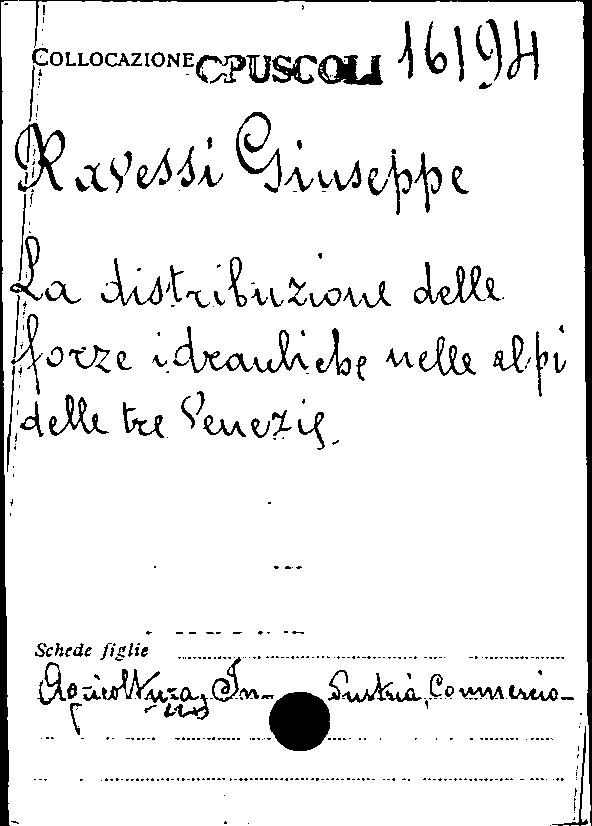 COLLOCAZIONE OPUSCOLI 16194
Ravessi Giuseppe
La distribuzione delle
forze idrauliche nelle alpi
delle tre Venezie.
Schede figlie
Agricoltura, In- dustria, Commercio-